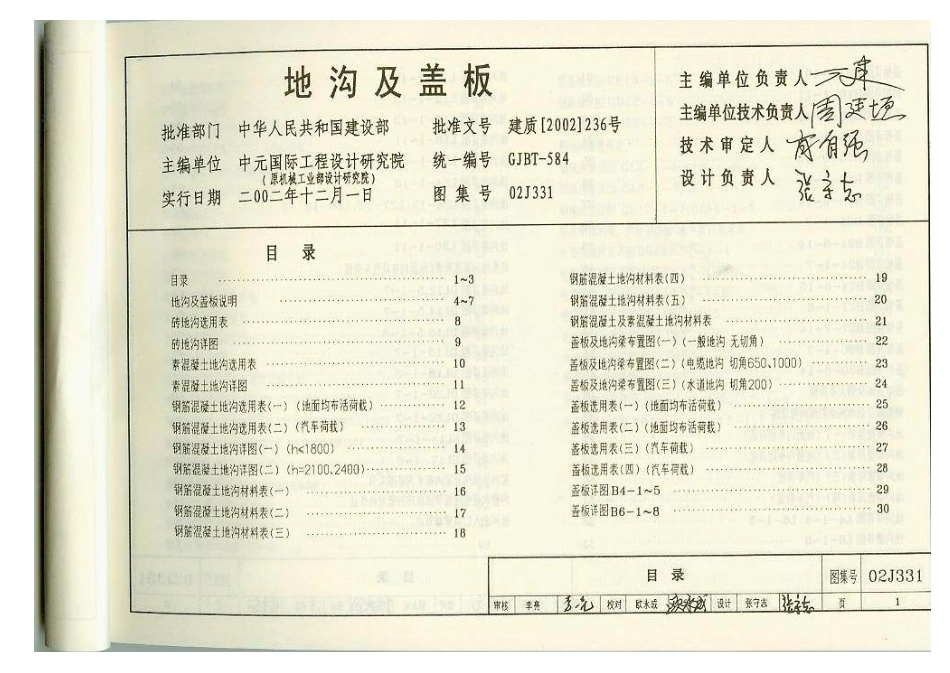 地沟及盖板
批准部门 中华人民共和国建设部 批准文号 建质[2002]236号
主编单位 中元国际工程设计研究院 统一编号 GJBT-584
(原机械工业部设计研究院)
实行日期 二00二年十二月一日 图集号 02J331
主编单位负责人
主编单位技术负责人
技术审定人
设计负责人 张守志
目 录
目录 1~3
地沟及盖板说明 4~7
砖地沟选用表 8
砖地沟详图 9
素混凝土地沟选用表 10
素混凝土地沟详图 11
钢筋混凝土地沟选用表(一)(地面均布活荷载) 12
钢筋混凝土地沟选用表(二)(汽车荷载) 13
钢筋混凝土地沟详图(一)(h≤1800) 14
钢筋混凝土地沟详图(二)(h=2100、2400) 15
钢筋混凝土地沟材料表(一) 16
钢筋混凝土地沟材料表(二) 17
钢筋混凝土地沟材料表(三) 18
钢筋混凝土地沟材料表(四) 19
钢筋混凝土地沟材料表(五) 20
钢筋混凝土及素混凝土地沟材料表 21
盖板及地沟梁布置图(一)(一般地沟 无切角) 22
盖板及地沟梁布置图(二)(电缆地沟 切角650、1000) 23
盖板及地沟梁布置图(三)(水道地沟 切角200) 24
盖板选用表(一)(地面均布活荷载) 25
盖板选用表(二)(地面均布活荷载) 26
盖板选用表(三)(汽车荷载) 27
盖板选用表(四)(汽车荷载) 28
盖板详图B4-1~5 29
盖板详图B6-1~8 30
目 录 图集号 02J331
审核 李亮 校对 欧永成 设计 张守志 张守志 页 1